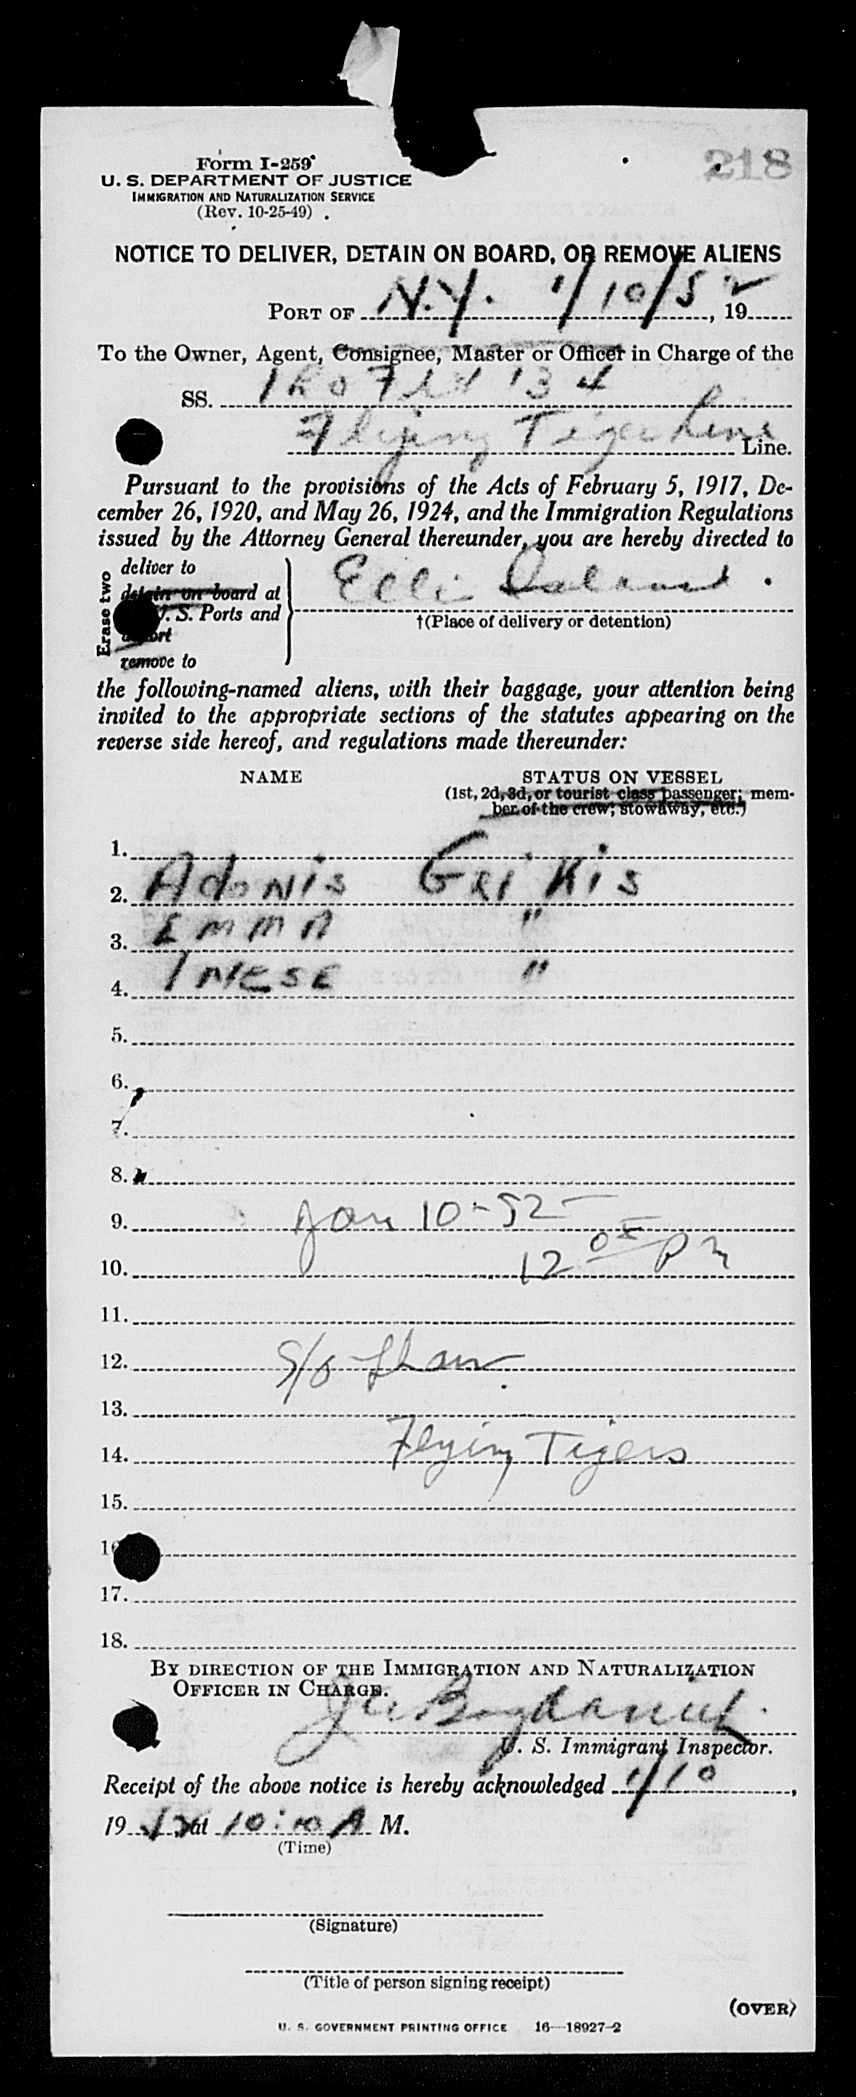 218
Form I-259
U. S. DEPARTMENT OF JUSTICE
IMMIGRATION AND NATURALIZATION SERVICE
(Rev. 10-25-49)
NOTICE TO DELIVER, DETAIN ON BOARD, OR REMOVE ALIENS
PORT OF N.Y. 1/10/52, 19
To the Owner, Agent, Consignee, Master or Officer in Charge of the
SS. 134
Flying Tiger Line Line.
Pursuant to the provisions of the Acts of February 5, 1917, De-
cember 26, 1920, and May 26, 1924, and the Immigration Regulations
issued by the Attorney General thereunder, you are hereby directed to
Erase two
deliver to
detain on board at
U. S. Ports and
remove to
Ellis Island.
†(Place of delivery or detention)
the following-named aliens, with their baggage, your attention being
invited to the appropriate sections of the statutes appearing on the
reverse side hereof, and regulations made thereunder:
NAME STATUS ON VESSEL
(1st, 2d, 3d, or tourist class passenger; mem-
ber of the crew; stowaway, etc.)
1.
2. Adonis Grikis
3. EMMA "
4. INESE "
5.
6.
7.
8.
9. Jan 10-52
10. 12 05 PM
11.
12.
13.
14. Flying Tigers
15.
16
17.
18.
BY DIRECTION OF THE IMMIGRATION AND NATURALIZATION
OFFICER IN CHARGE.
U. S. Immigrant Inspector.
Receipt of the above notice is hereby acknowledged 1/10,
19 52 at 10:10 A M.
(Time)
(Signature)
(Title of person signing receipt)
(OVER)
U. S. GOVERNMENT PRINTING OFFICE 16—18927-2